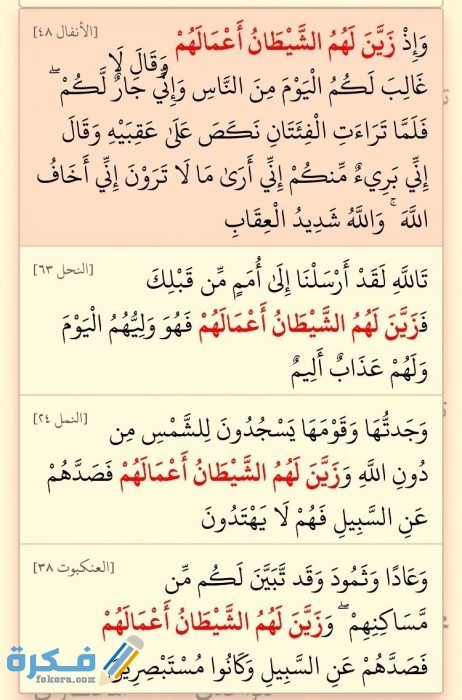 [الأنفال ٤٨]
وَإِذْ زَيَّنَ لَهُمُ الشَّيْطَانُ أَعْمَالَهُمْ وَقَالَ لَا
غَالِبَ لَكُمُ الْيَوْمَ مِنَ النَّاسِ وَإِنِّي جَارٌ لَّكُمْ ۖ
فَلَمَّا تَرَاءَتِ الْفِئَتَانِ نَكَصَ عَلَىٰ عَقِبَيْهِ وَقَالَ
إِنِّي بَرِيءٌ مِّنكُمْ إِنِّي أَرَىٰ مَا لَا تَرَوْنَ إِنِّي أَخَافُ
اللَّهَ ۚ وَاللَّهُ شَدِيدُ الْعِقَابِ
[النحل ٦٣]
تَاللَّهِ لَقَدْ أَرْسَلْنَا إِلَىٰ أُمَمٍ مِّن قَبْلِكَ
فَزَيَّنَ لَهُمُ الشَّيْطَانُ أَعْمَالَهُمْ فَهُوَ وَلِيُّهُمُ الْيَوْمَ
وَلَهُمْ عَذَابٌ أَلِيمٌ
[النمل ٢٤]
وَجَدتُّهَا وَقَوْمَهَا يَسْجُدُونَ لِلشَّمْسِ مِن
دُونِ اللَّهِ وَزَيَّنَ لَهُمُ الشَّيْطَانُ أَعْمَالَهُمْ فَصَدَّهُمْ
عَنِ السَّبِيلِ فَهُمْ لَا يَهْتَدُونَ
[العنكبوت ٣٨]
وَعَادًا وَثَمُودَ وَقَد تَّبَيَّنَ لَكُم مِّن
مَّسَاكِنِهِمْ ۖ وَزَيَّنَ لَهُمُ الشَّيْطَانُ أَعْمَالَهُمْ
فَصَدَّهُمْ عَنِ السَّبِيلِ وَكَانُوا مُسْتَبْصِرِينَ
فكرة
fekera.com